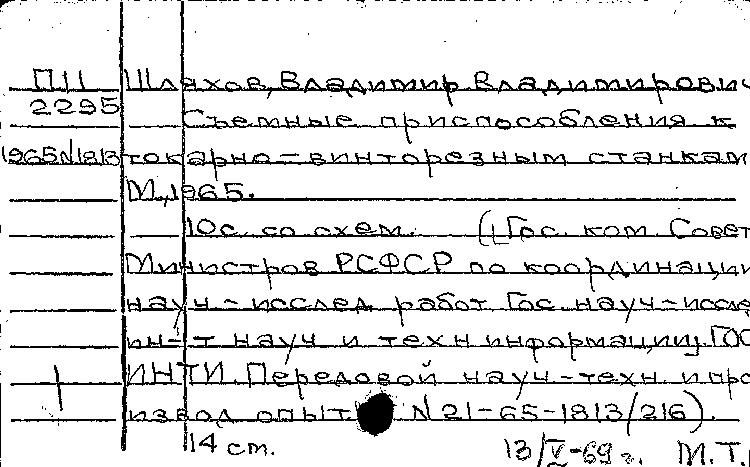 П11 Шляхов, Владимир Владимирович
2295 Съемные приспособления к
1965 N1813 токарно-винторезным станкам
М., 1965.
10с. со схем. (Гос. ком. Совет
Министров РСФСР по координации
науч-исслед работ Гос. науч-иссле
ин-т науч и техн информации, ГОС
ИНТИ. Передовой науч-техн. и про
извод опыт N 21-65-1813/216).
14 ст.
13/V-69г. М.Т.